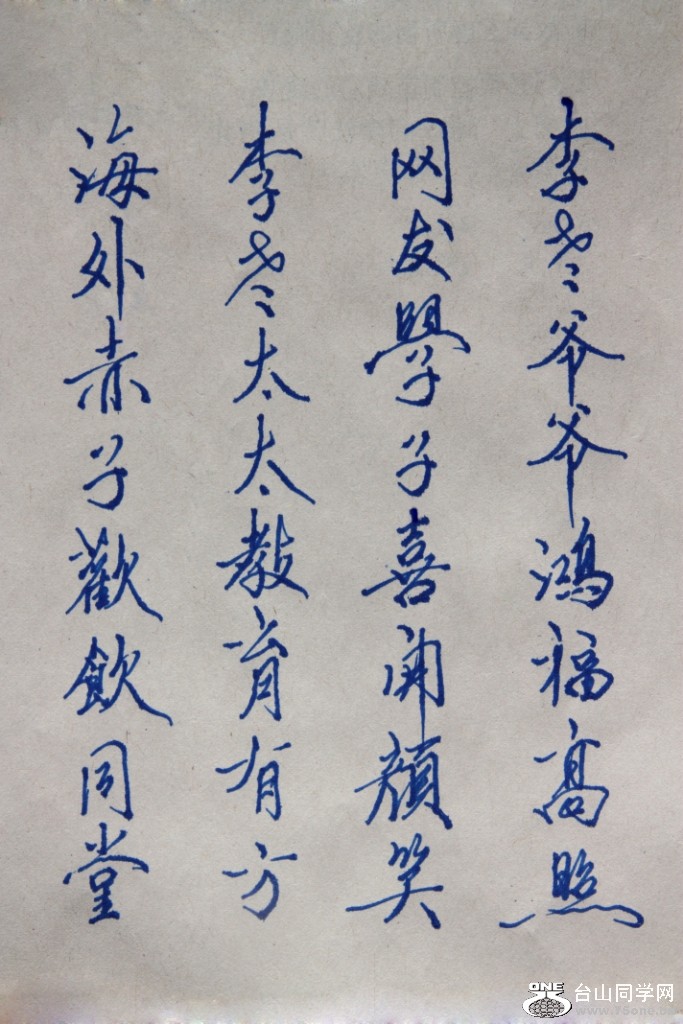 李老爷爷鴻福高照
网友學子喜開顔笑
李老太太教育有方
海外赤子歡飲同堂
ONE 台山同学网